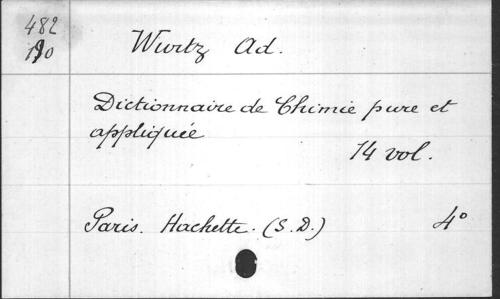 482
Wurtz Ad.
Dictionnaire de Chimie pure et
appliquée
14 vol.
Paris. Hachette. (S.D.) 4°